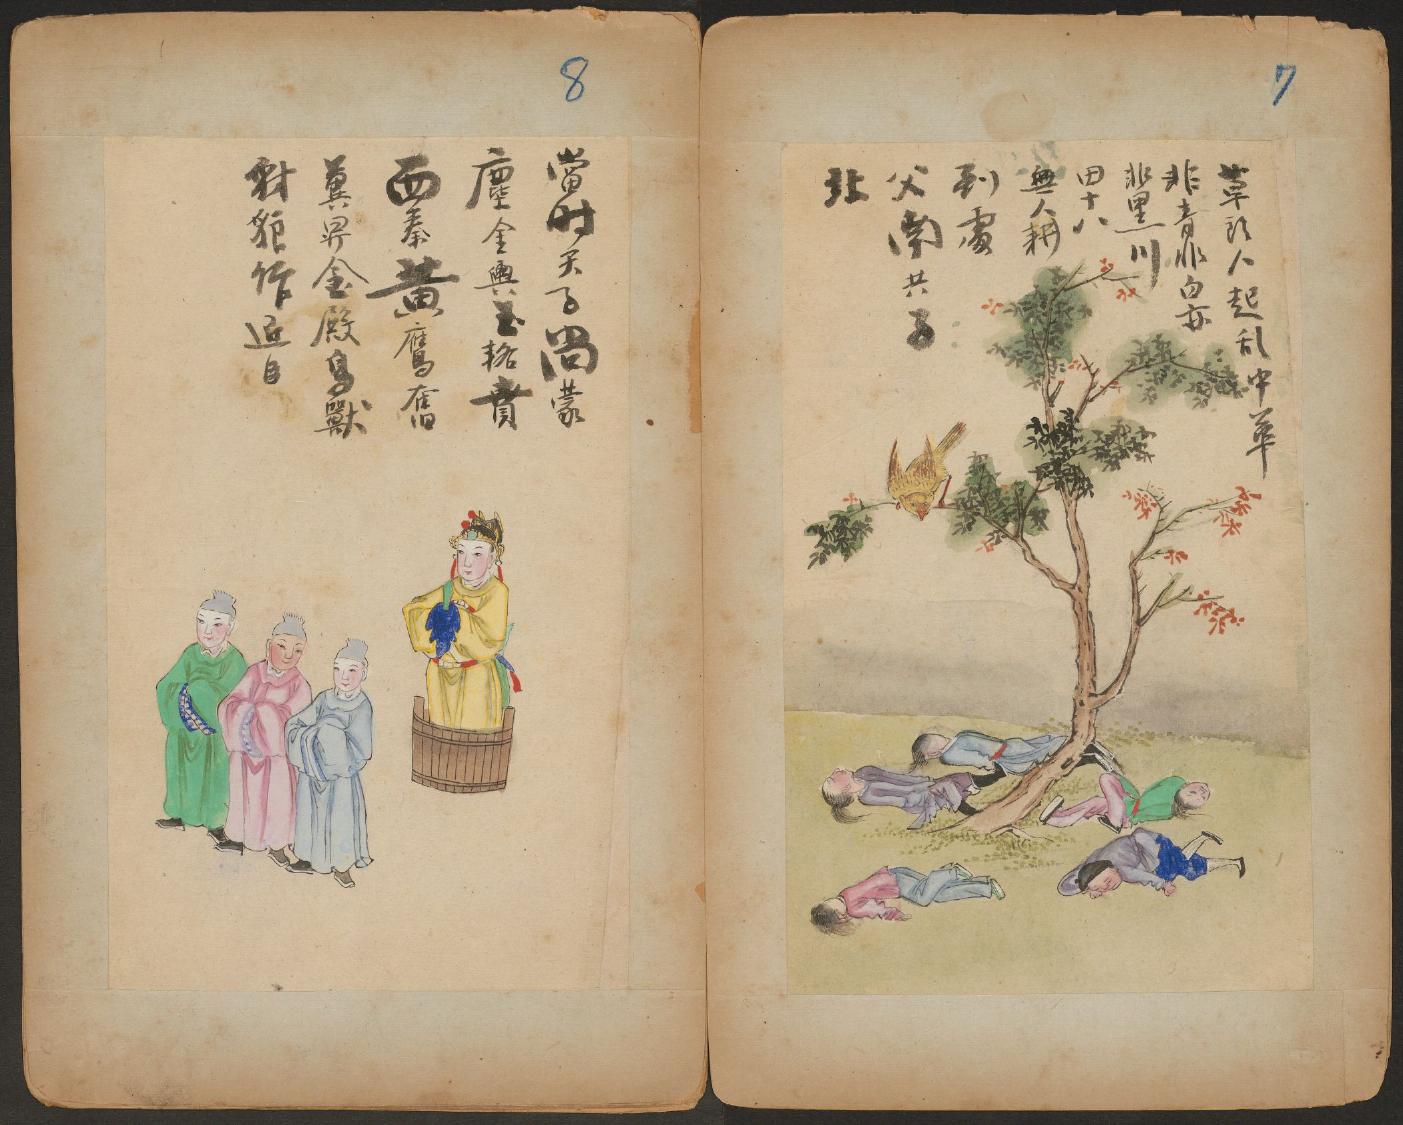 7
草頭人起乱中華
非青非白亦
非黑川
田十八
無人耕
到處
父南共子
北
8
當时天子尚蒙
塵金輿玉輅賁
西秦黄鷹奮
翼昇金殿鳥獸
豺狼作近臣